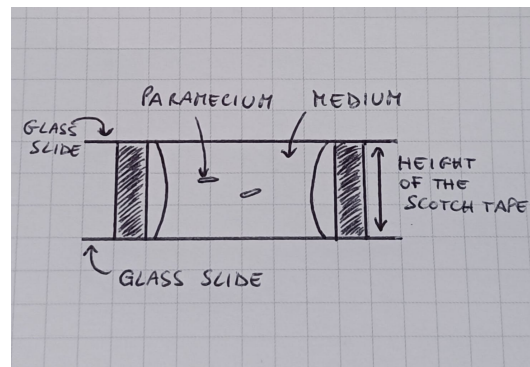 PARAMECIUM
MEDIUM
GLASS
SLIDE
HEIGHT
OF THE
SCOTCH TAPE
GLASS SLIDE